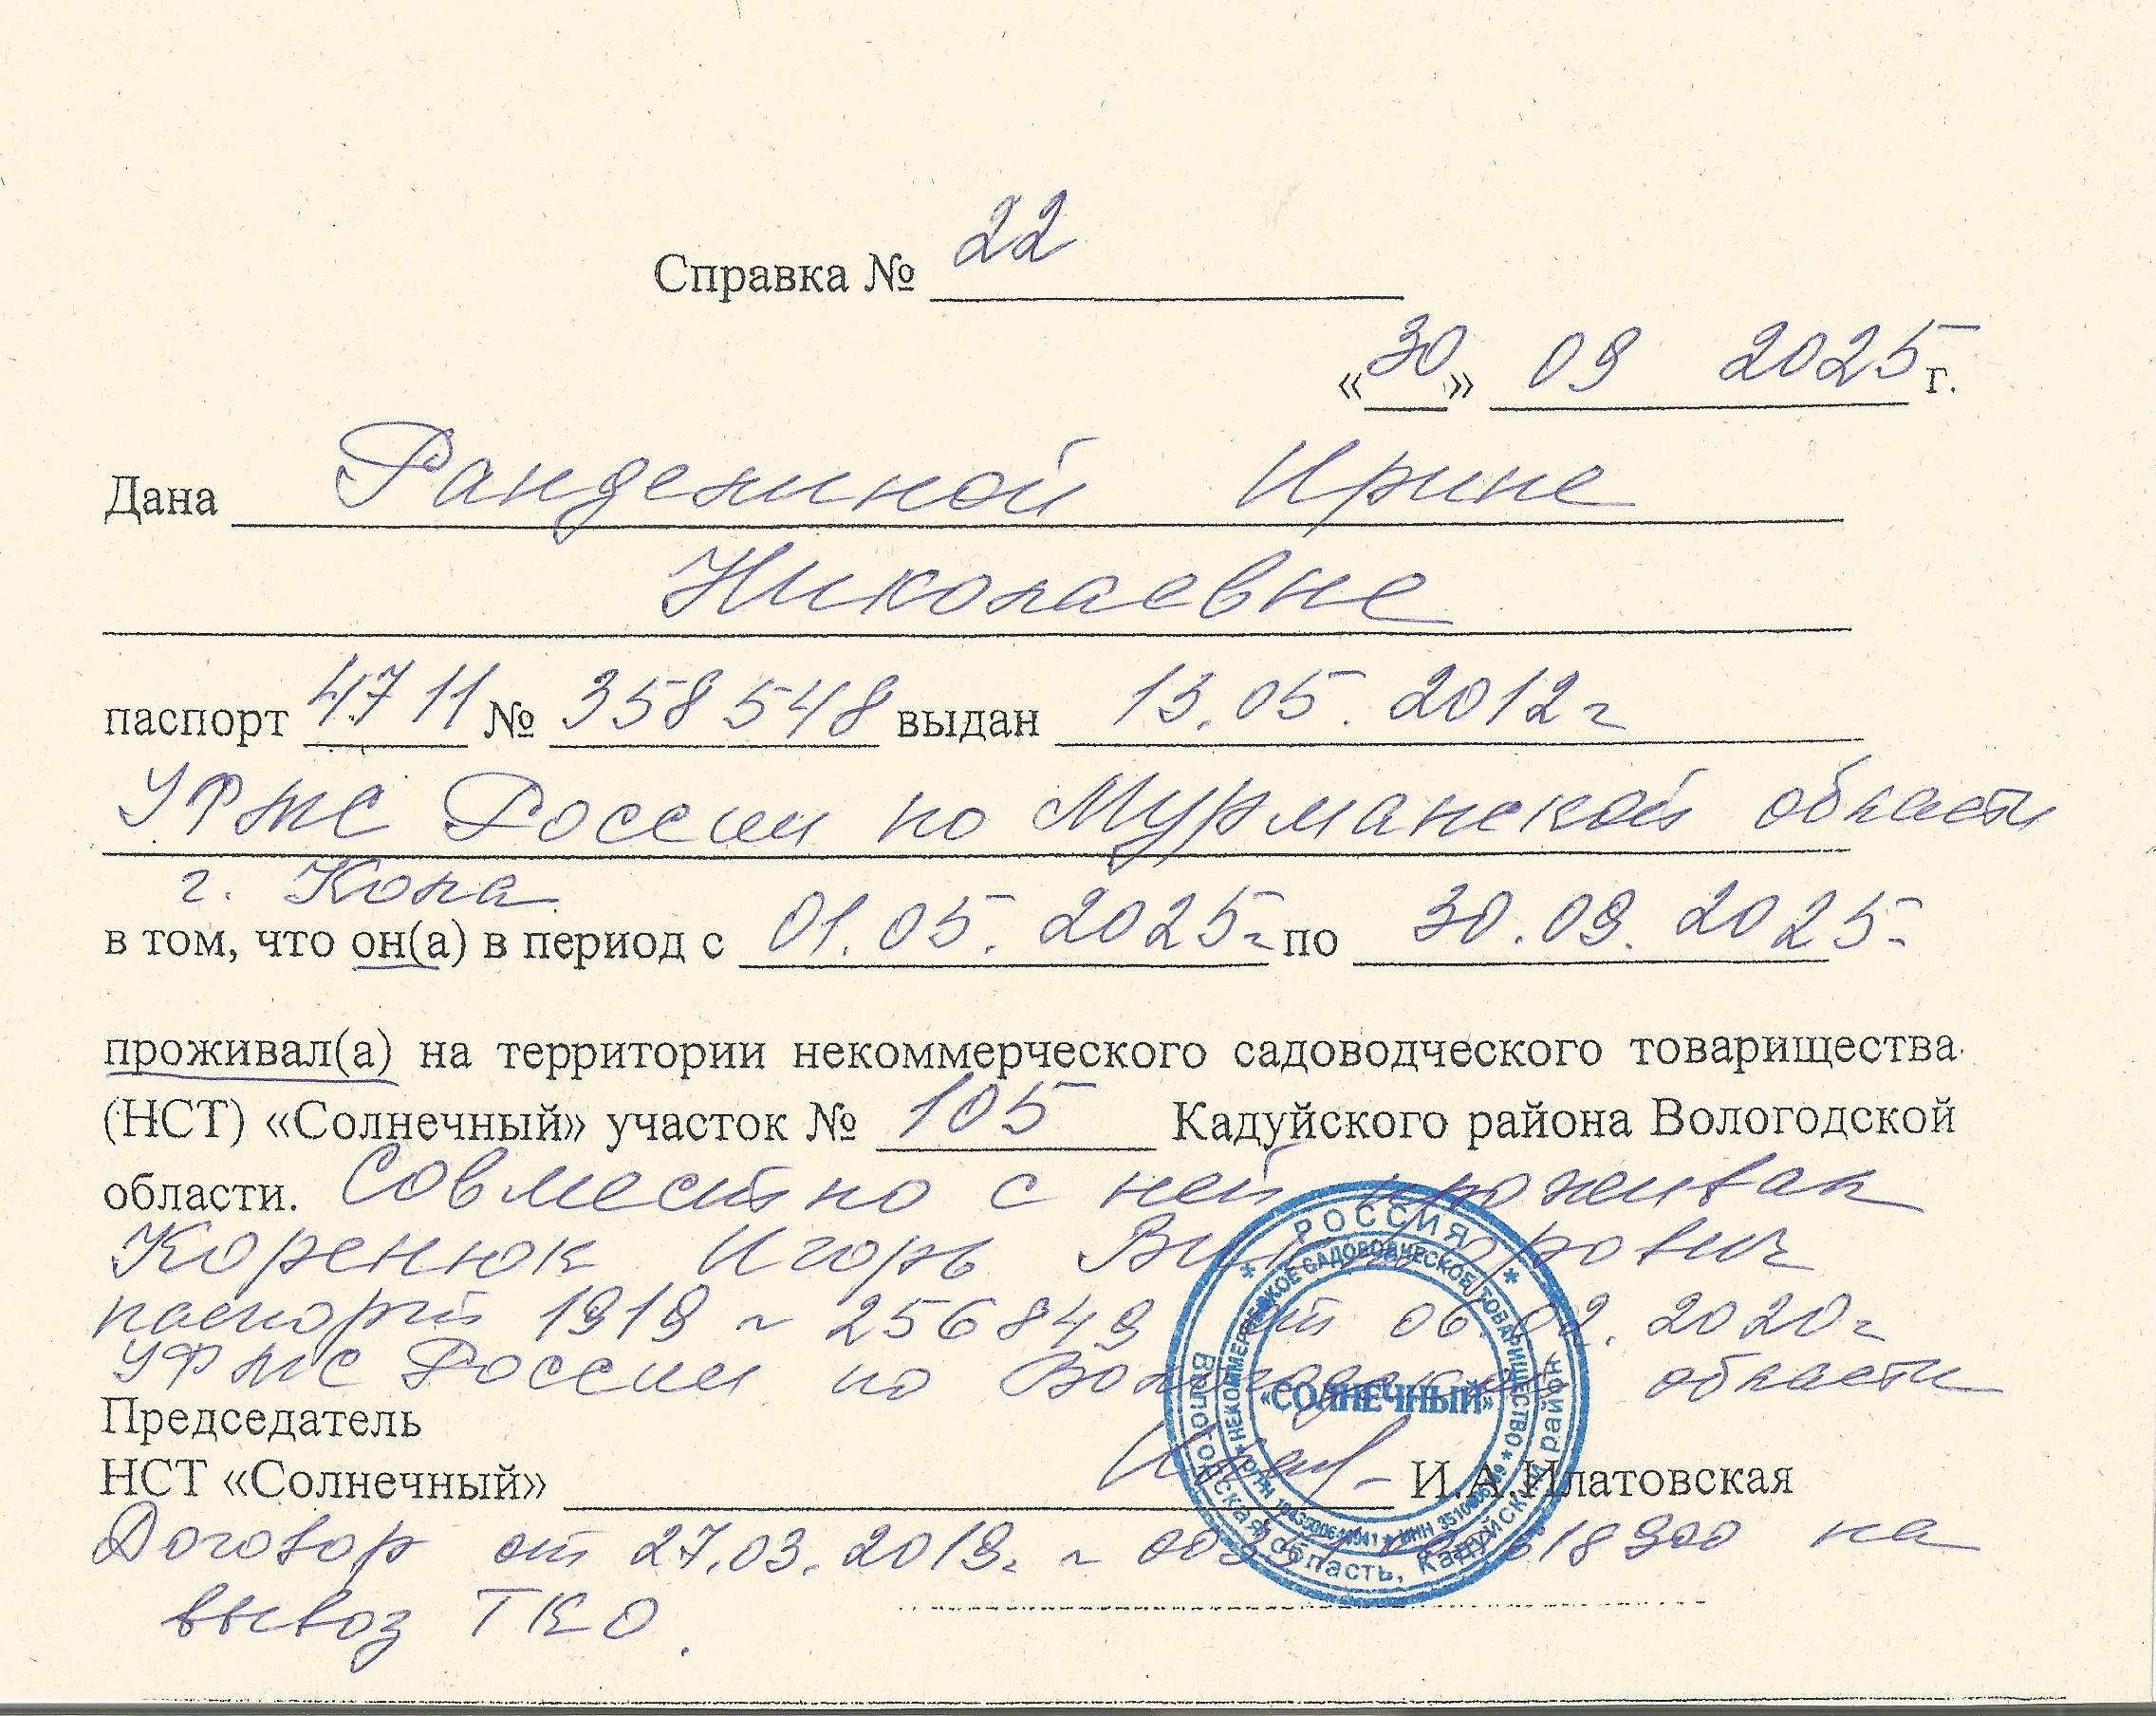 Справка № 22
«30» 09 2025 г.
Дана Ранделиной Ирине
Николаевне
паспорт 47 11 № 358 548 выдан 13.05.2012 г
УФМС России по Мурманской области
г. Кола
в том, что он(а) в период с 01.05.2025 г по 30.09.2025 г
проживал(а) на территории некоммерческого садоводческого товарищества
(НСТ) «Солнечный» участок № 105 Кадуйского района Вологодской
области. Совместно с ней проживал
Коренюк Игорь Викторович
паспорт 1919 ~ 256849 от 06.02.2020 г
УФМС России по Вологодской области
Председатель
НСТ «Солнечный» И.А.Илатовская
Договор от 27.03.2019 г. ~ на
вывоз ТКО.
* РОССИЯ *
Вологодская область, Кадуйский район
НЕКОММЕРЧЕСКОЕ САДОВОДЧЕСКОЕ ТОВАРИЩЕСТВО
«СОЛНЕЧНЫЙ»